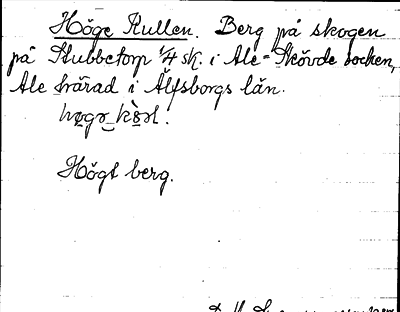 Höge Kullen. Berg på skogen
på Stubbetorp 1/4 sk. i Ale-Skövde socken,
Ale härad i Älfsborgs län.
Högt berg.